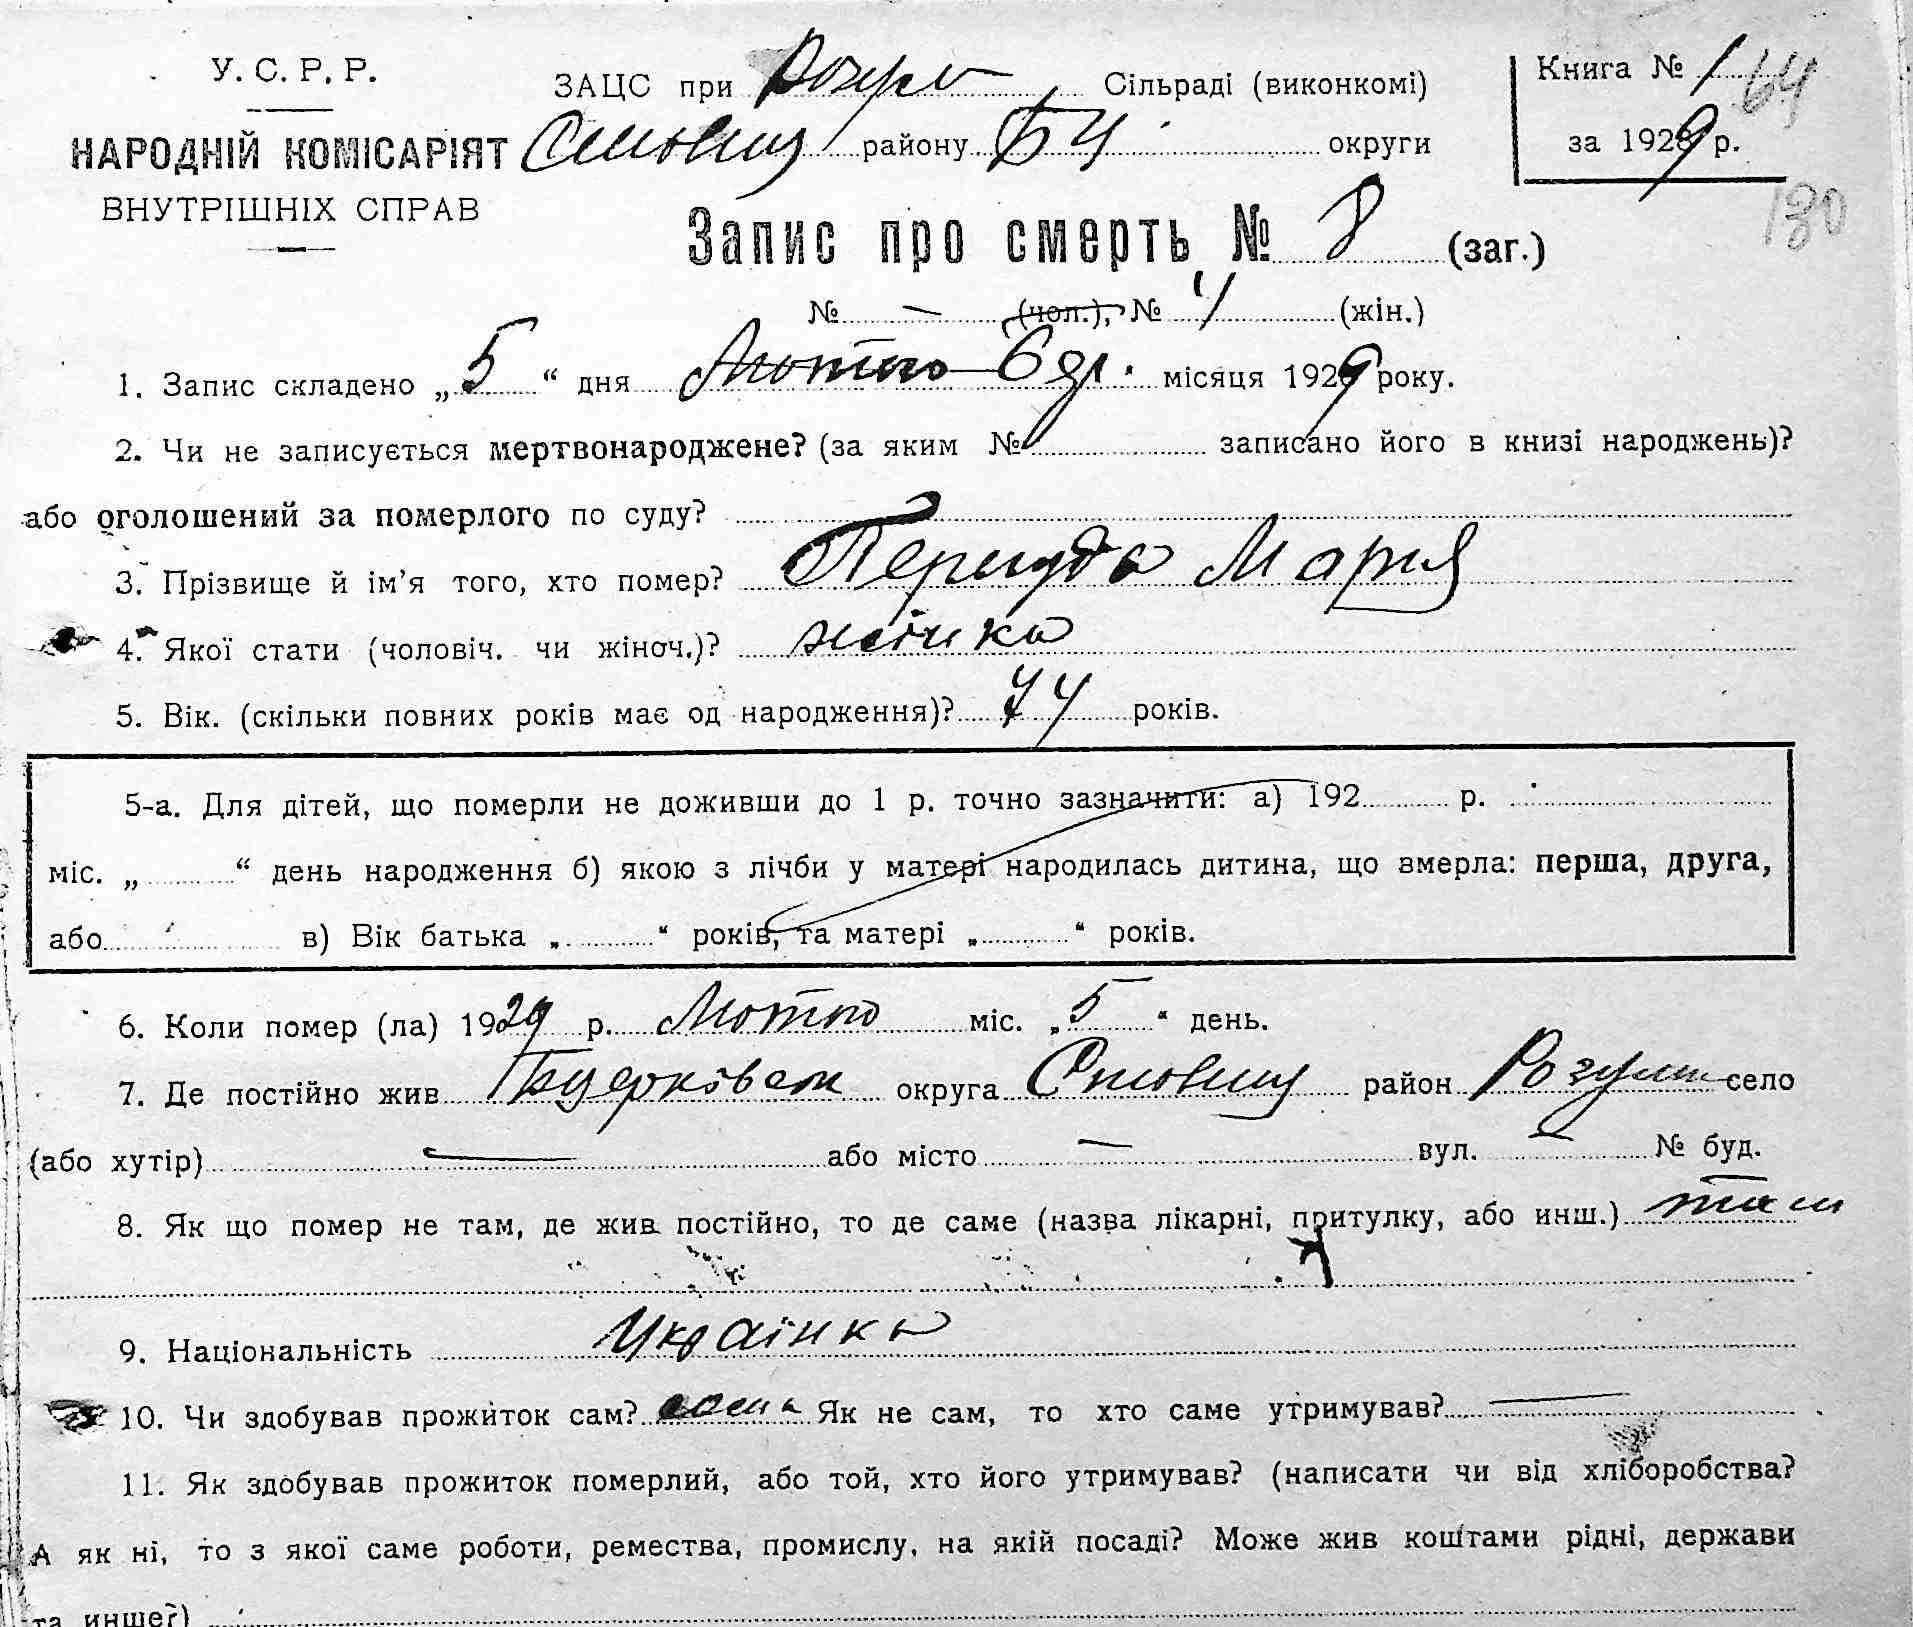 У. С. Р. Р.
НАРОДНІЙ КОМІСАРІЯТ
ВНУТРІШНІХ СПРАВ
ЗАЦС при Сільраді (виконкомі)
району БЦ округи
Книга № 1
64
за 1929 р.
130
Запис про смерть № 8 (заг.)
№ — (чол.), № 4 (жін.)
1. Запис складено „5“ дня Лютого місяця 1929 року.
2. Чи не записується мертвонароджене? (за яким № записано його в книзі народжень)?
або оголошений за померлого по суду?
3. Прізвище й ім’я того, хто помер? Перегуда Мария
4. Якої стати (чоловіч. чи жіноч.)? жінка
5. Вік. (скільки повних років має од народження)? 74 років.
5-а. Для дітей, що померли не доживши до 1 р. точно зазначити: а) 192 р.
міс. „ “ день народження б) якою з лічби у матері народилась дитина, що вмерла: перша, друга,
або в) Вік батька „ “ років, та матері „ “ років.
6. Коли помер (ла) 1929 р. Лютого міс. „5“ день.
7. Де постійно жив Бцерківськ округа район село
(або хутір) — або місто — вул. — № буд.
8. Як що помер не там, де жив постійно, то де саме (назва лікарні, притулку, або инш.) там
9. Національність Українка
10. Чи здобував прожиток сам? сама Як не сам, то хто саме утримував? —
11. Як здобував прожиток померлий, або той, хто його утримував? (написати чи від хліборобства?
А як ні, то з якої саме роботи, ремества, промислу, на якій посаді? Може жив коштами рідні, держави
та инше?)